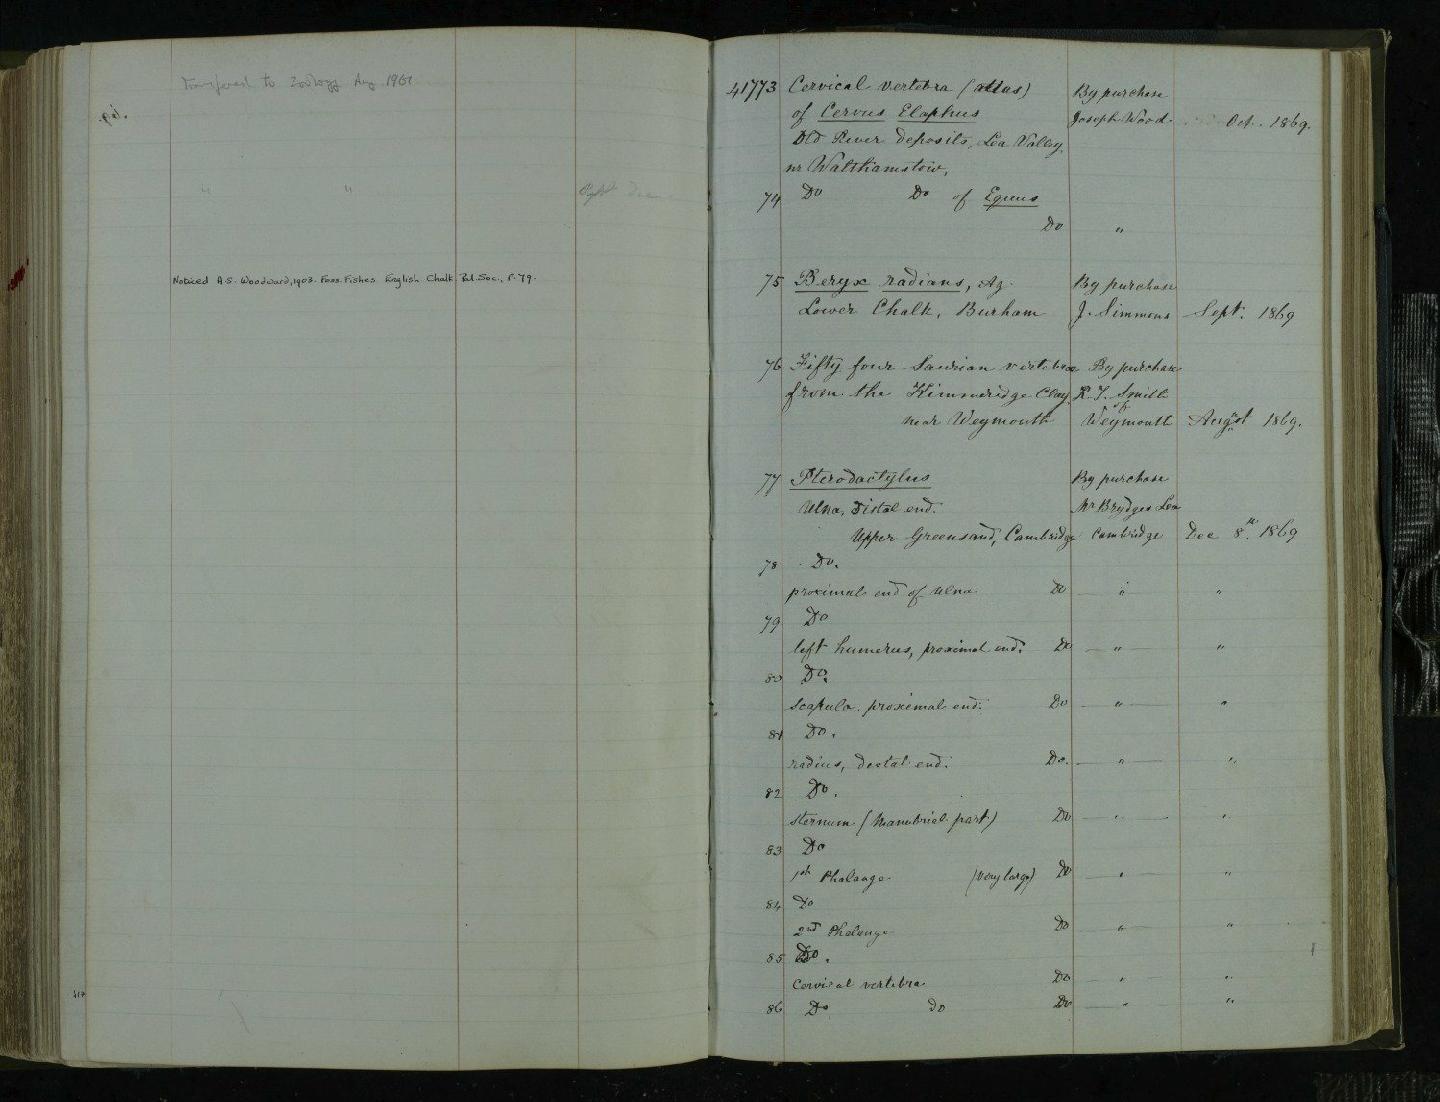 Transferred to Zoology Aug. 1961
" "
Noticed A.S. Woodward, 1903. Foss. Fishes English Chalk Pal. Soc., P. 79.
417
41773 Cervical vertebra (atlas) By purchase
of Cervus Elaphus Joseph Wood. Oct. 1869.
Old River deposits, Lea Valley
nr Walthamstow,
74 Do Do of Equus
Do "
75 Beryx radians, Ag. By purchase
Lower Chalk, Burham J. Simmons Sept. 1869
76 Fifty four Saurian vertebrae By purchase
from the Kimmeridge Clay R. J. Smith
of
near Weymouth Weymouth August 1869.
77 Pterodactylus By purchase
Ulna, distal end. Mr Brydges Lea
Upper Greensand, Cambridge Cambridge Dec 8th. 1869
78 Do.
proximal end of ulna Do " "
79 Do
left humerus, proximal end. Do " "
80 Do.
scapula. proximal end. Do " "
81 Do.
radius, distal end. Do. " "
82 Do.
sternum (Manubrial part) Do " "
83 Do
1st Phalange (very large) Do " "
84 Do
2nd Phalange Do " "
85 Do.
cervical vertebra Do " "
86 Do do Do " "